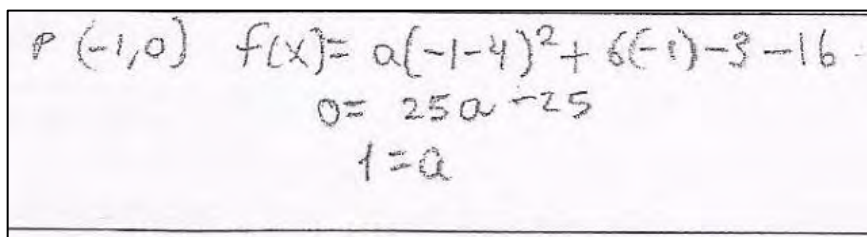 P (-1,0) f(x)= a(-1-4)²+ 6(-1)-3-16
0= 25a-25
1=a